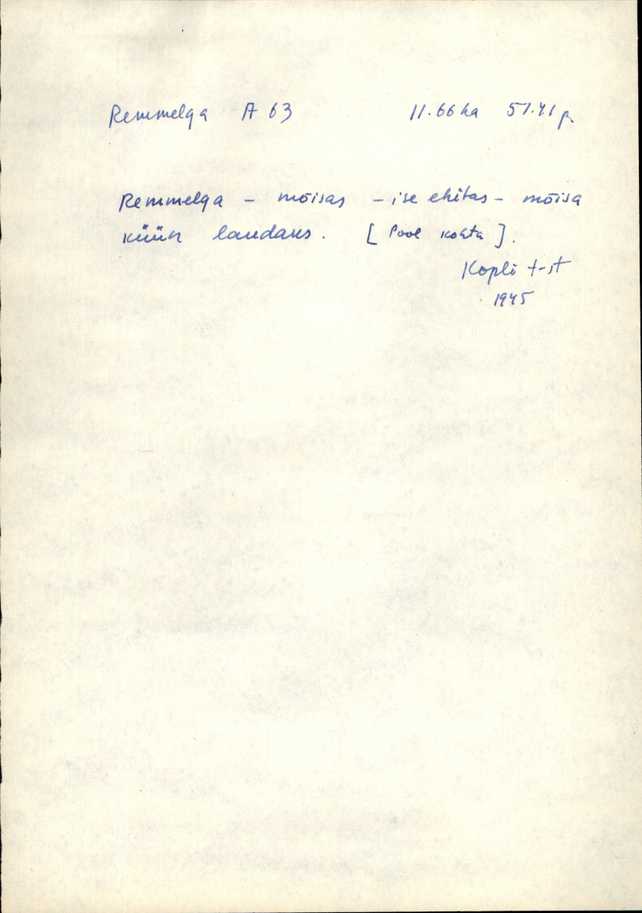 Remmelga A 63 11.66 ha 51.41 p.
Remmelga - mõisas - ise ehitas - mõisa
küün laudaks. [Pool kohta].
Kopli t-st
1945